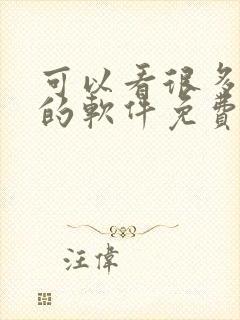 可以看很多
的軟件免費
汪偉